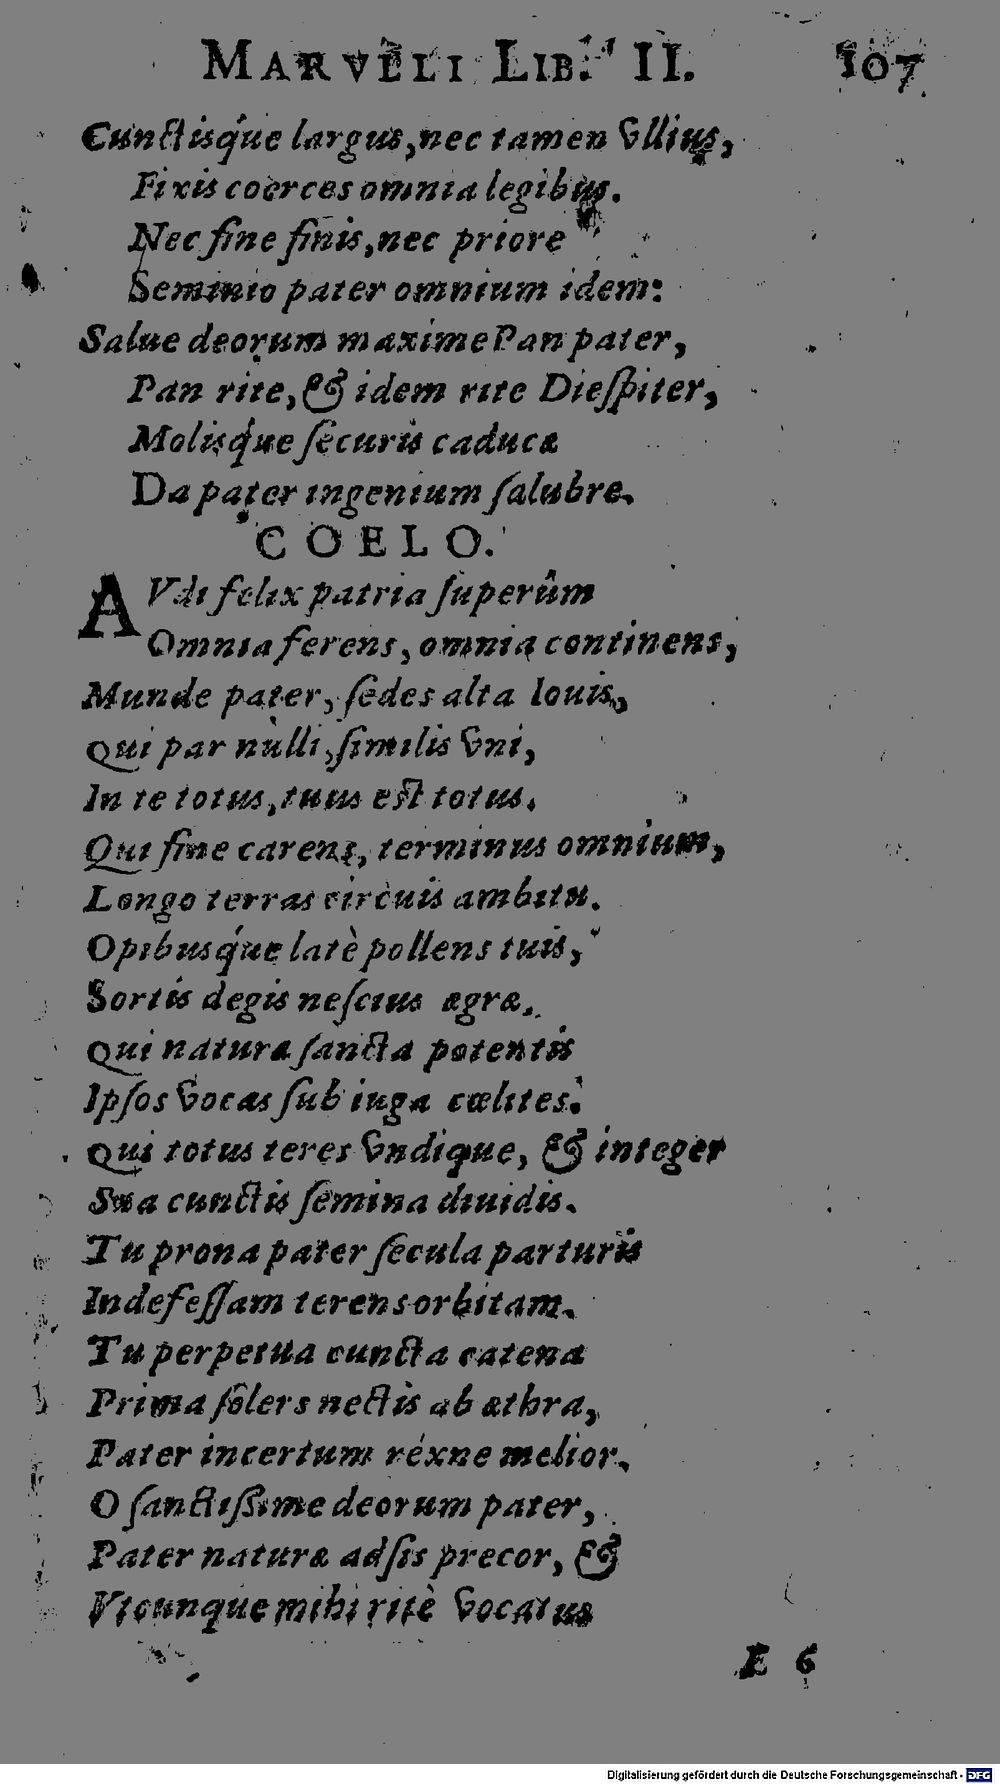 MARVLLI LIB. II. 107
Cunctisq́ue largus, nec tamen vllius,
Fixis coërces omnia legibus.
Nec fine finis, nec priore
Seminio pater omnium idem:
Salue deorum maxime Pan pater,
Pan rite, & idem rite Diespiter,
Molisq́ue securis caducæ
Da pater ingenium salubre.
COELO.
AVdi felix patria superûm
Omnia ferens, omnia continens,
Munde pater, sedes alta Iouis,
Qui par nulli, similis vni,
In te totus, tuus est totus.
Qui fine carens, terminus omnium,
Longo terras circuis ambitu.
Opibusq́ue latè pollens tuis,
Sortis degis nescius ægræ.
Qui natura sancta potentis
Ipsos vocas sub iuga cælites.
Qui totus teres vndique, & integer
Sua cunctis semina diuidis.
Tu prona pater secula parturis
Indefessam terens orbitam.
Tu perpetua cuncta catena
Prima solers nectis ab æthra,
Pater incertum réxne melior.
O sanctissime deorum pater,
Pater naturæ adsis precor, &
Vtcunque mihi ritè vocatus
E 6
Digitalisierung gefördert durch die Deutsche Forschungsgemeinschaft - DFG